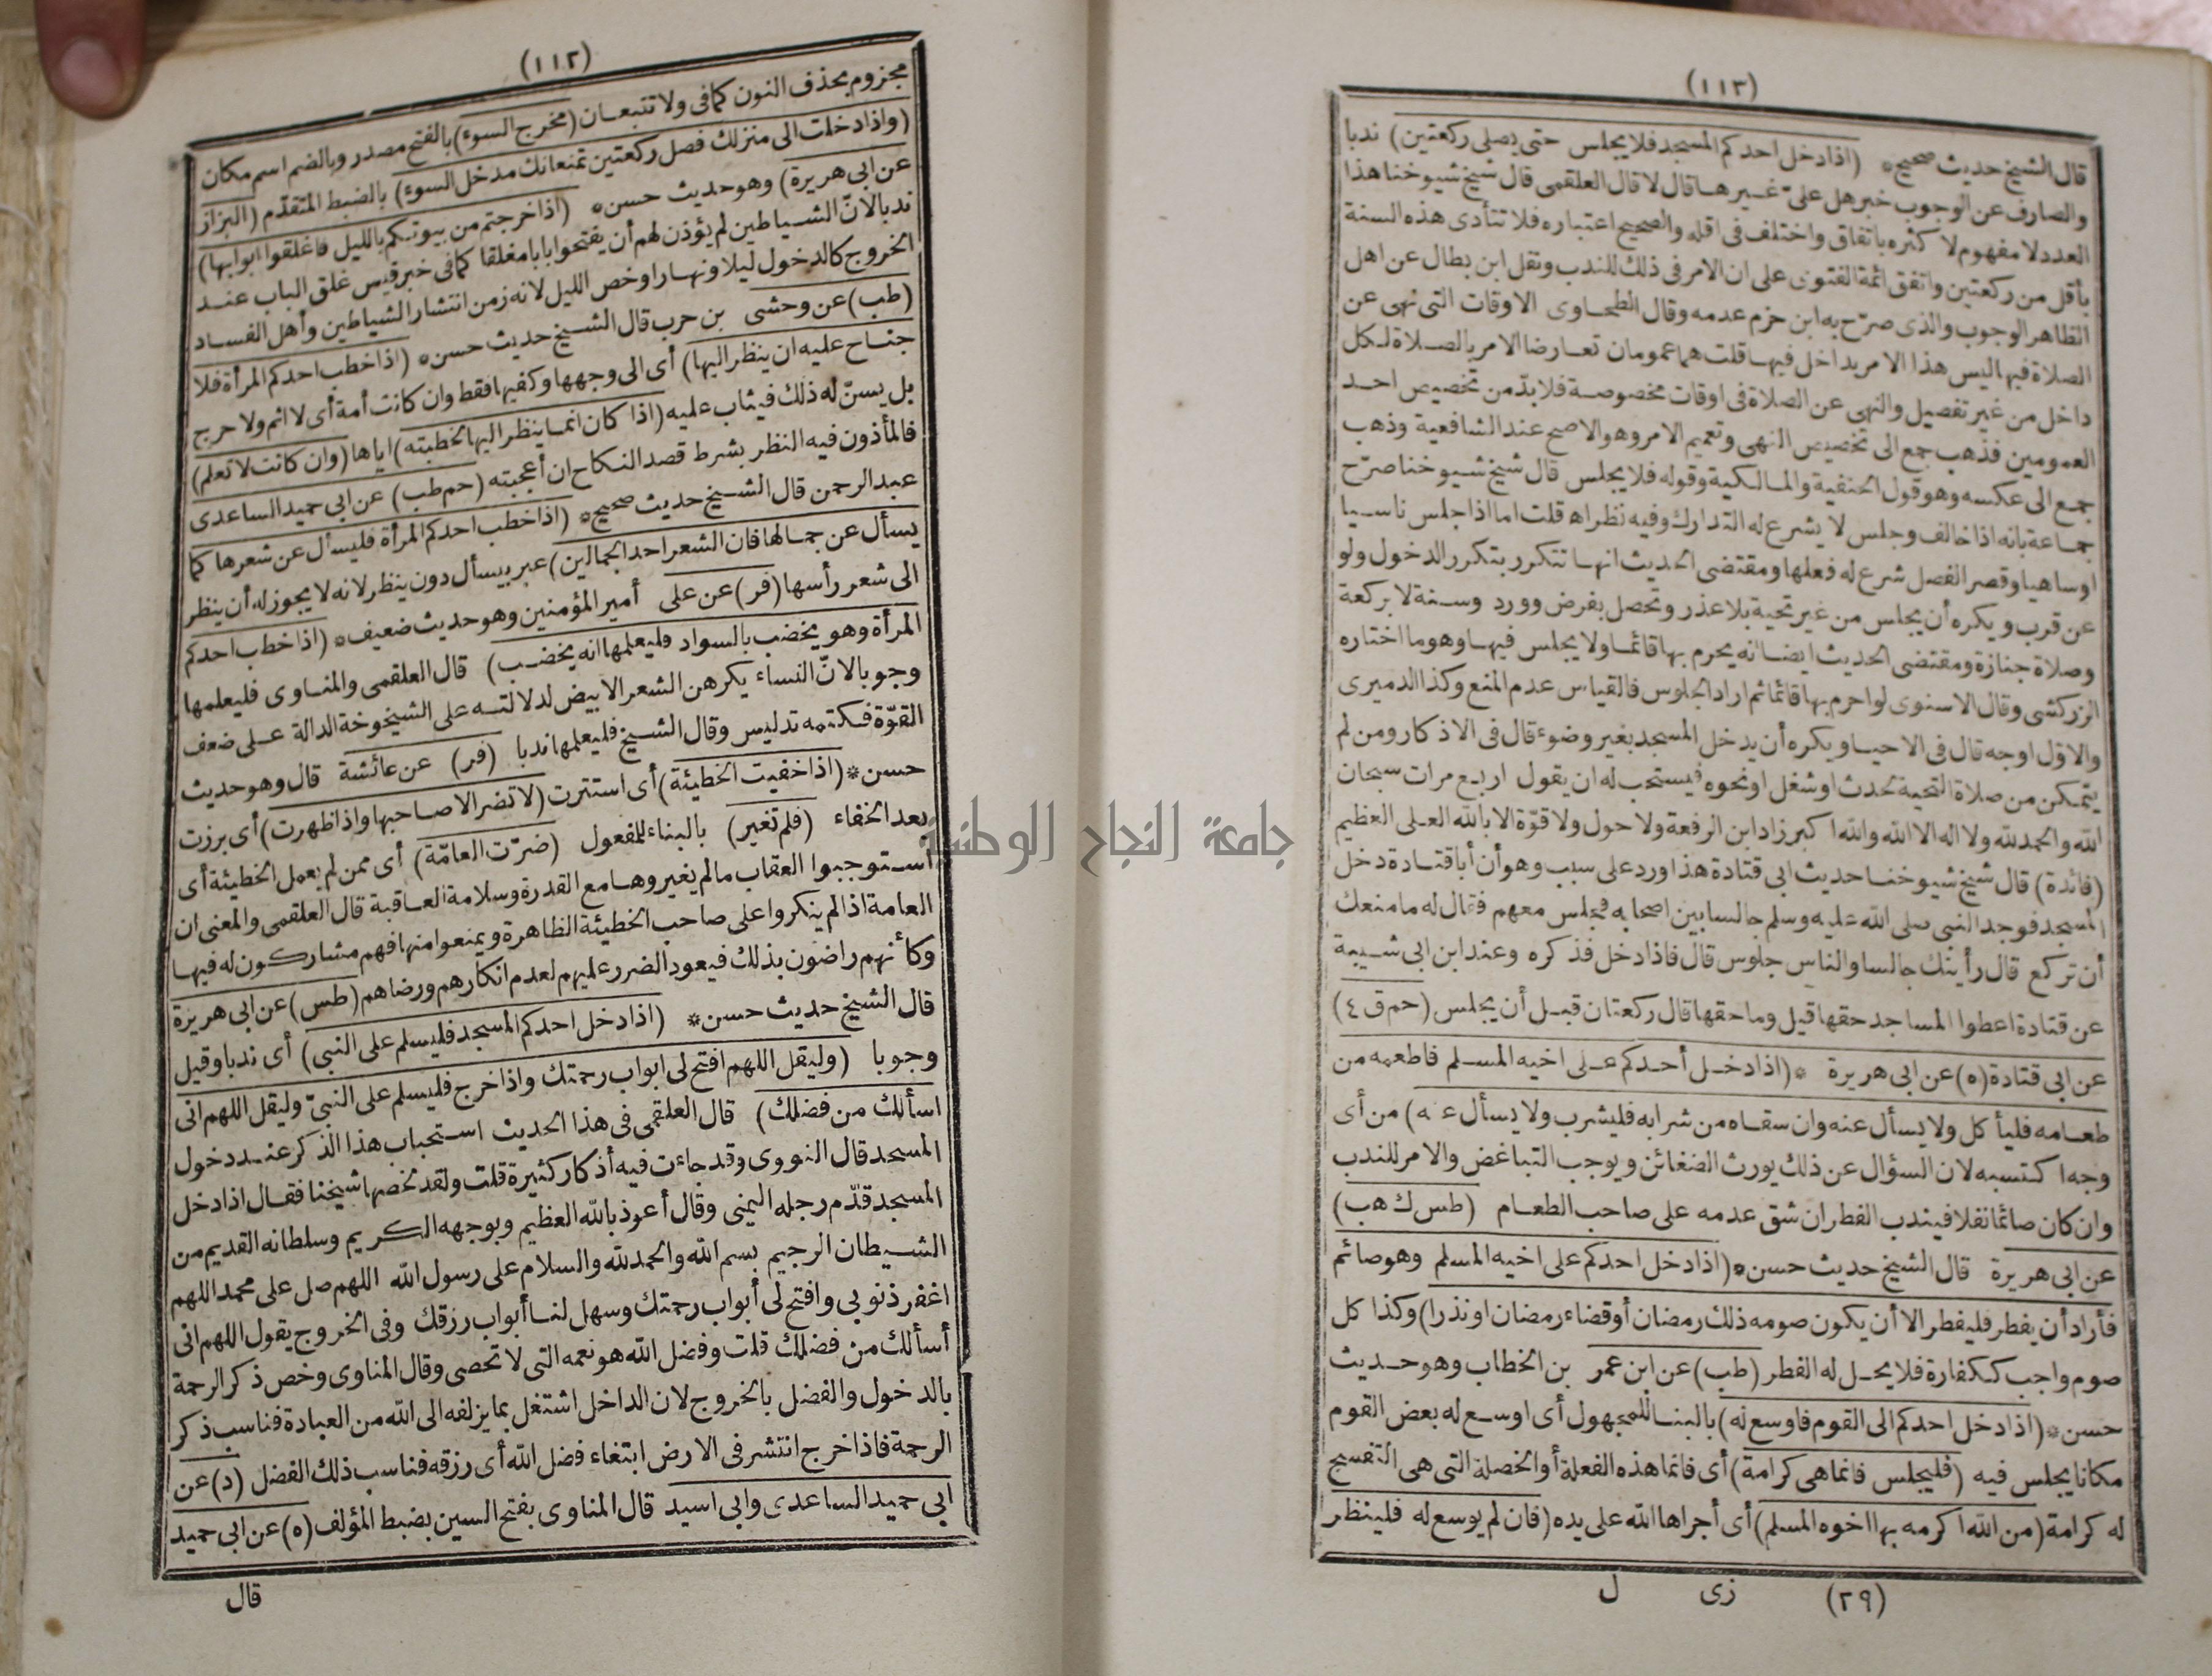 (١١٢)
مجزوم بحذف النون كمافى ولا تتبعـان (مخرج السوء) بالفتح مصدر وبالضم اسم مكان
(واذا دخلت الى منزلك فصل ركعتين تمنعانك مدخل السوء) بالضبط المتقدّم (البزاز
عن ابى هريرة) وهو حديث حسن * (اذا خرجتم من بيوتكم بالليل فاغلقوا ابوابها)
ندبا لانّ الشياطين لم يؤذن لهم أن يفتحوا بابا مغلقا كما فى خبر قيس غلق الباب عند
الخروج كالدخول ليلا ونهارا وخص الليل لانه زمن انتشار الشياطين وأهل الفساد
(طب) عن وحشى بن حرب قال الشيخ حديث حسن * (اذا خطب احدكم المرأة فلا
جناح عليه ان ينظر اليها) أى الى وجهها وكفيها فقط وان كانت أمة أى لا اثم ولا حرج
بل يسنّ له ذلك فيثاب عليه (اذا كان انما ينظر اليها لخطبته) اياها (وان كانت لا تعلم)
فالمأذون فيه النظر بشرط قصد النكاح ان أعجبته (حم طب) عن ابى حميد الساعدى
عبد الرحمن قال الشيخ حديث صحيح * (اذا خطب احدكم المرأة فليسأل عن شعرها كما
يسأل عن جمالها فان الشعر احد الجمالين) عبر بيسأل دون ينظر لانه لا يجوز له أن ينظر
الى شعر رأسها (فر) عن على أمير المؤمنين وهو حديث ضعيف * (اذا خطب احدكم
المرأة وهو يخضب بالسواد فليعلمها انه يخضب) قال العلقمى والمناوى فليعلمها
وجوبا لانّ النساء يكرهن الشعر الابيض لدلالته على الشيخوخة الدالة على ضعف
القوّة فكتمه تدليس وقال الشيخ فليعلمها ندبا (فر) عن عائشة قال وهو حديث
حسن * (اذا خفيت الخطيئة) أى استترت (لا تضر الا صاحبها واذا ظهرت) أى برزت
بعد الخفاء (فلم تغير) بالبناء للمفعول (ضرّت العامّة) أى ممن لم يعمل الخطيئة أى
استوجبوا العقاب مالم يغيروها مع القدرة وسلامة العاقبة قال العلقمى والمعنى ان
العامة اذا لم ينكروا على صاحب الخطيئة الظاهرة ويمنعوا منها فهم مشاركون له فيها
وكأنهم راضون بذلك فيعود الضرر عليهم لعدم انكارهم ورضاهم (طس) عن ابى هريرة
قال الشيخ حديث حسن * (اذا دخل احدكم المسجد فليسلم على النبى) أى ندبا وقيل
وجوبا (وليقل اللهم افتح لى ابواب رحمتك واذا خرج فليسلم على النبىّ وليقل اللهم انى
اسألك من فضلك) قال العلقمى فى هذا الحديث استحباب هذا الذكر عند دخول
المسجد قال النووى وقد جاءت فيه أذكار كثيرة قلت ولقد لخصها شيخنا فقال اذا دخل
المسجد قدّم رجله اليمنى وقال أعوذ بالله العظيم وبوجهه الكريم وسلطانه القديم من
الشيطان الرجيم بسم الله والحمد لله والسلام على رسول الله اللهم صل على محمد اللهم
اغفر ذنوبى وافتح لى أبواب رحمتك وسهل لنا أبواب رزقك وفى الخروج يقول اللهم انى
أسألك من فضلك قلت وفضل الله هو نعمه التى لا تحصى وقال المناوى وخص ذكر الرحمة
بالدخول والفضل بالخروج لان الداخل اشتغل بما يزلفه الى الله من العبادة فناسب ذكر
الرحمة فاذا خرج انتشر فى الارض ابتغاء فضل الله أى رزقه فناسب ذلك الفضل (د) عن
ابى حميد الساعدى وابى اسيد قال المناوى بفتح السين بضبط المؤلف (ه) عن ابى حميد
قال
(١١٣)
قال الشيخ حديث صحيح * (اذا دخل احدكم المسجد فلا يجلس حتى يصلى ركعتين) ندبا
والصارف عن الوجوب خبر هل علىّ غيرها قال لا قال العلقمى قال شيخ شيوخنا هذا
العدد لا مفهوم لا كثره باتفاق واختلف فى اقله والصحيح اعتباره فلا تتأدى هذه السنة
بأقل من ركعتين واتفق ائمة الفتوى على ان الامر فى ذلك للندب ونقل ابن بطال عن اهل
الظاهر الوجوب والذى صرّح به ابن حزم عدمه وقال الطحاوى الاوقات التى نهى عن
الصلاة فيها ليس هذا الامر بداخل فيها قلت هما عمومان تعارضا الامر بالصلاة لكل
داخل من غير تفصيل والنهى عن الصلاة فى اوقات مخصوصة فلا بدّ من تخصيص احد
العمومين فذهب جمع الى تخصيص النهى وتعميم الامر وهو الاصح عند الشافعية وذهب
جمع الى عكسه وهو قول الحنفية والمالكية وقوله فلا يجلس قال شيخ شيوخنا صرّح
جماعة بانه اذا خالف وجلس لا يشرع له التدارك وفيه نظر اه قلت اما اذا جلس ناسيا
اوساهيا وقصر الفصل شرع له فعلها ومقتضى الحديث انها تتكرر بتكرر الدخول ولو
عن قرب ويكره أن يجلس من غير تحية بلا عذر وتحصل بفرض وورد وسنة لا بركعة
وصلاة جنازة ومقتضى الحديث ايضا انه يحرم بها قائما ولا يجلس فيها وهو ما اختاره
الزركشى وقال الاسنوى لو احرم بها قائما ثم اراد الجلوس فالقياس عدم المنع وكذا الدميرى
والاوّل اوجه قال فى الاحيا ويكره أن يدخل المسجد بغير وضوء قال فى الاذكار ومن لم
يتمكن من صلاة التحية لحدث او شغل او نحوه فيستحب له ان يقول اربع مرات سبحان
الله والحمد لله ولا اله الا الله والله اكبر زاد ابن الرفعة ولا حول ولا قوّة الا بالله العلى العظيم
(فائدة) قال شيخ شيوخنا حديث ابى قتادة هذا ورد على سبب وهو أن أبا قتادة دخل
المسجد فوجد النبى صلى الله عليه وسلم جالسا بين اصحابه فجلس معهم فقال له ما منعك
أن تركع قال رأيتك جالسا والناس جلوس قال فاذا دخل فذكره وعند ابن ابى شيبة
عن قتادة اعطوا المساجد حقها قيل وما حقها قال ركعتان قبل أن يجلس (حم ق ٤)
عن ابى قتادة (ه) عن ابى هريرة * (اذا دخل أحدكم على اخيه المسلم فاطعمه من
طعامه فليأكل ولا يسأل عنه وان سقاه من شرابه فليشرب ولا يسأل عنه) من أى
وجه اكتسبه لان السؤال عن ذلك يورث الضغائن ويوجب التباغض والامر للندب
وان كان صائما نفلا فيندب الفطر ان شق عدمه على صاحب الطعام (طس ك هب)
عن ابى هريرة قال الشيخ حديث حسن * (اذا دخل احدكم على اخيه المسلم وهو صائم
فأراد أن يفطر فليفطر الا أن يكون صومه ذلك رمضان أو قضاء رمضان او نذرا) وكذا كل
صوم واجب ككفارة فلا يحل له الفطر (طب) عن ابن عمر بن الخطاب وهو حديث
حسن * (اذا دخل احدكم الى القوم فاوسع له) بالبنا للمجهول أى اوسع له بعض القوم
مكانا يجلس فيه (فليجلس فانما هى كرامة) أى فانما هذه الفعلة أو الخصلة التى هى التفسيح
له كرامة (من الله اكرمه بها اخوه المسلم) أى أجراها الله على يده (فان لم يوسع له فلينظر
(٢٩) زى ل
جامعة النجاح الوطنية